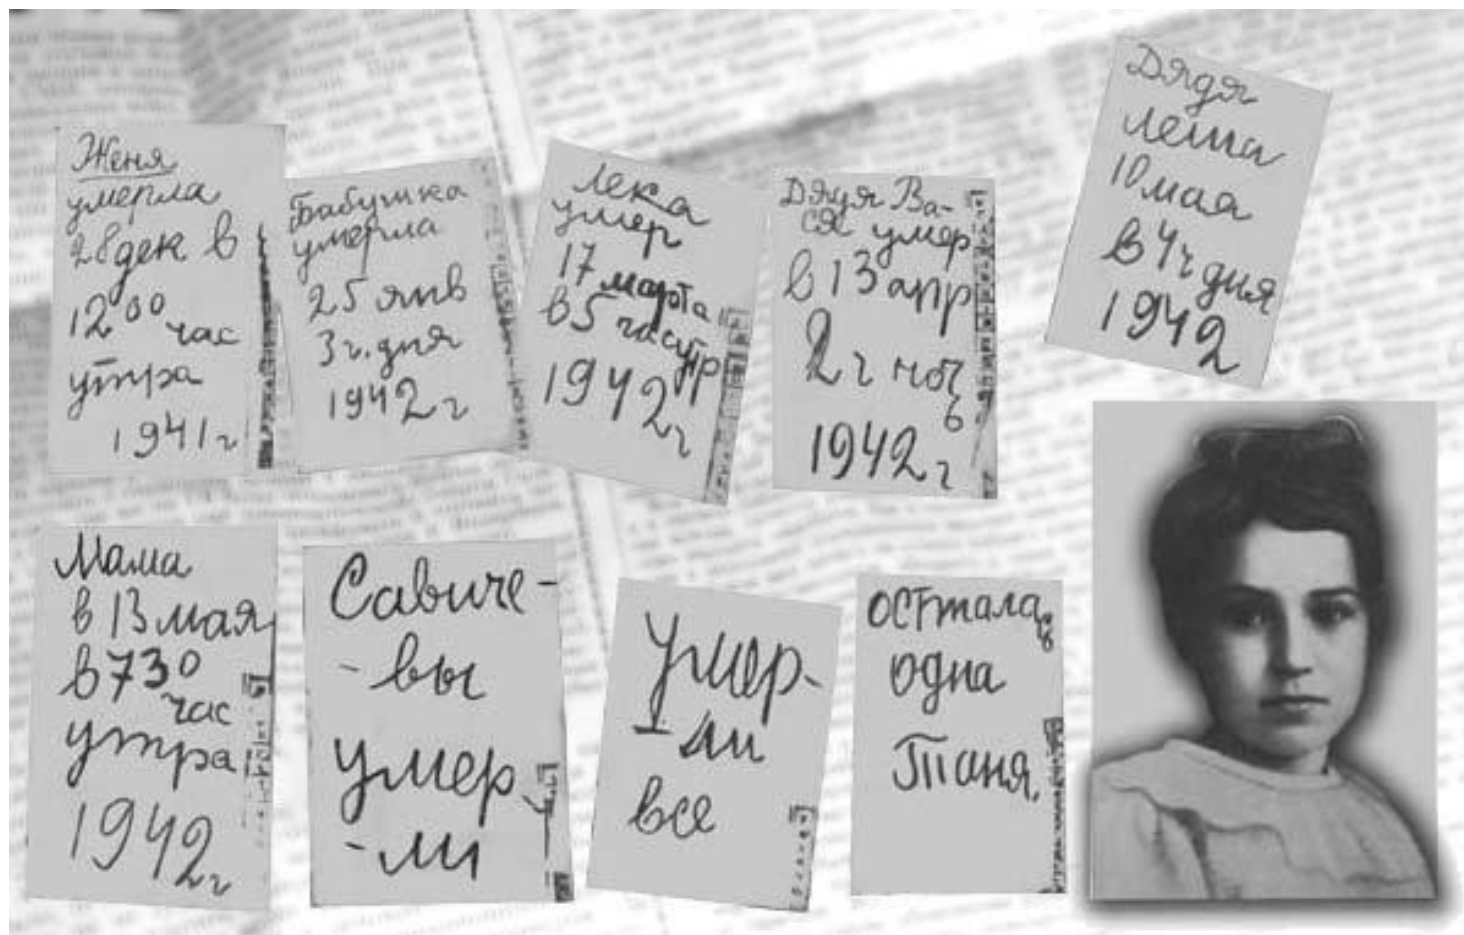 Женя
умерла
28 дек в
12 00 час
утра
1941 г
Бабушка
умерла
25 янв
3 ч. дня
1942 г
Лека
умер
17 марта
в 5 час утр
1942 г
Дядя Ва-
ся умер
в 13 апр
2 ч ноч
ь
1942 г
Дядя
Леша
10 мая
в 4 ч дня
1942
Мама
в 13 мая
в 7 30
час
утра
1942 г
Савиче-
-вы
умер
-ли
Умер-
-ли
все
Осталась
одна
Таня.